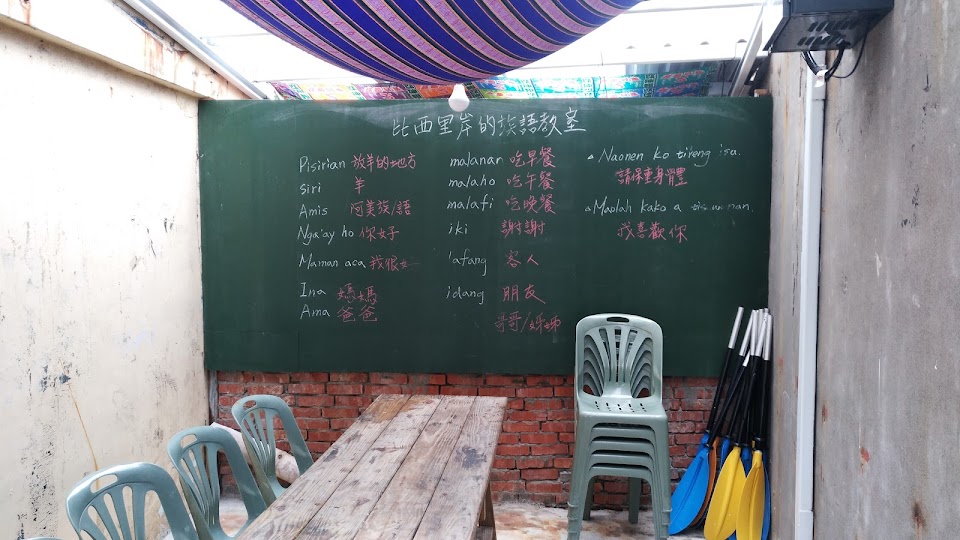 比西里岸的族語教室
Pisirian 放羊的地方
Siri 羊
Amis 阿美族/語
Nga'ay ho 你好
Maman aca 我很好
Ina 媽媽
Ama 爸爸
malanar 吃早餐
malaho 吃午餐
malafi 吃晚餐
iki 謝謝
'afang 客人
idang 朋友
哥哥/姊姊
Naonen ko tireng isa.
請保重身體
Maolah kako a
我喜歡你